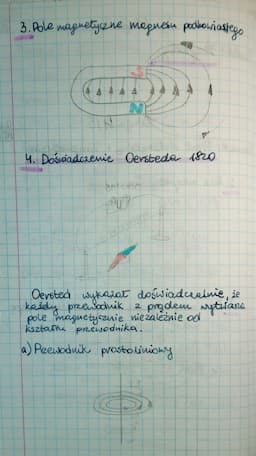 3. Pole magnetyczne magnesu podkowiastego
S
N
4. Doświadczenie Oersteda 1820
Oersted wykazał doświadczalnie, że
każdy przewodnik z prądem wytwarza
pole magnetycznie niezależnie od
kształtu przewodnika.
a) Przewodnik prostoliniowy